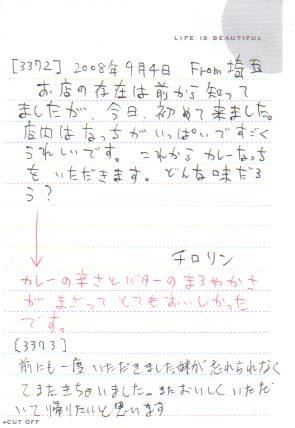 LIFE IS BEAUTIFUL
[3372] 2008年9月4日 From 埼玉
お店の存在は前から知って
ましたが、今日、初めて来ました。
店内はなっちがいっぱいですごく
うれしいです。これからカレーなっち
をいただきます。どんな味だろ
う?
チロリン
カレーの辛さとバターのまろやかさ
がまざってとてもおいしかった
です。
[3373]
前にも一度いただきました味が忘れられなく
てまたきちゃいました。またおいしくいただ
いて帰りたいと思います
CUT OFF